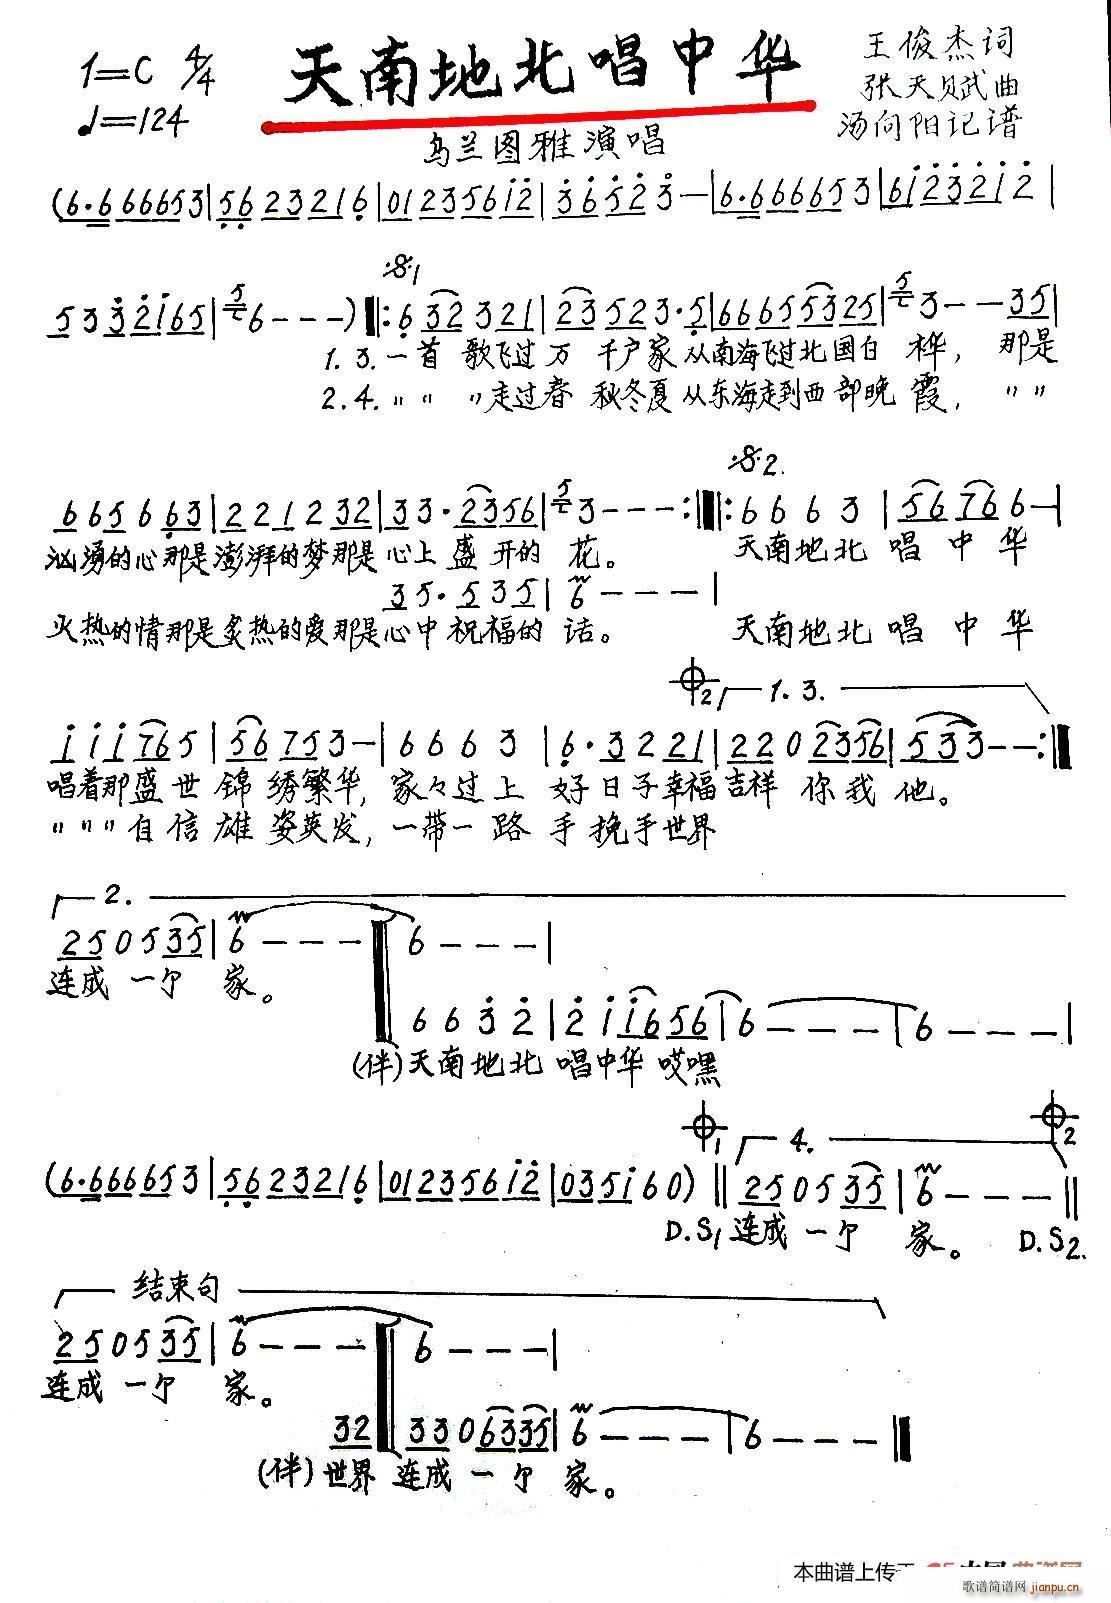 1=C 4/4
♩=124
天南地北唱中华
王俊杰词
张天赋曲
汤向阳记谱
乌兰图雅演唱
(6·6666653|562323216|0123561̇2̇|3̇6̇5̇2̇3̇—|6·6666553|61̇2̇3̇2̇1̇2̇|
5332̇1̇65|6---)‖:6323321|2352 3·5|66655325|3--35|
1.3.一首 歌飞过万 千户家 从南海飞过北国白 桦，那是
2.4.〃〃 〃走过春 秋冬夏 从东海走到西部晚 霞，〃〃
665663|221232|33·2356|3---:‖:6663|56766-|
汹涌的心那是澎湃的梦那是心上 盛 开的 花。 天南地北 唱 中 华
35·535|6---|
火热的情那是炙热的爱那是心中 祝福的 话。 天南地北 唱 中 华
1.3.
1̇1̇1̇765|56753-|6663|6·3221|2202356|533--:‖
唱着那盛世 锦 绣繁华，家々过上 好日子幸福吉祥 你我 他。
〃〃〃自信雄 姿英发，一带一路 手挽手世界
2.
250535|6---‖6---|
连成 一个 家。
663̇2̇|2̇1̇1̇656|6---|6---|
(伴)天南地北 唱中华 哎嘿
4.
(6·6666653|56232216|0123561̇2̇|0351̇60)‖250535|6---‖
D.S1 连成 一个 家。 D.S2.
结束句
250535|6---‖6---|
连成 一个 家。
32‖3306335|6---|6---‖
(伴)世界 连成 一个 家。
本曲谱上传于
歌谱简谱网 jianpu.cn